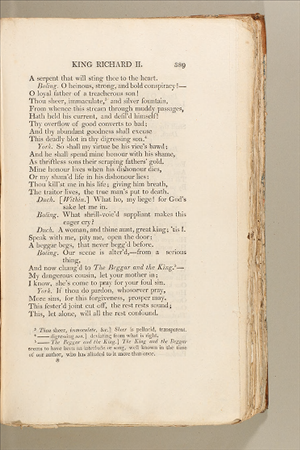 KING RICHARD II. 389
A serpent that will sting thee to the heart.
Boling. O heinous, strong, and bold conspiracy!—
O loyal father of a treacherous son!
Thou sheer, immaculate,³ and silver fountain,
From whence this stream through muddy passages,
Hath held his current, and defil'd himself!
Thy overflow of good converts to bad;
And thy abundant goodness shall excuse
This deadly blot in thy digressing son.⁴
York. So shall my virtue be his vice's bawd;
And he shall spend mine honour with his shame,
As thriftless sons their scraping fathers' gold.
Mine honour lives when his dishonour dies,
Or my sham'd life in his dishonour lies:
Thou kill'st me in his life; giving him breath,
The traitor lives, the true man's put to death.
Duch. [Within.] What ho, my liege! for God's
sake let me in.
Boling. What shrill-voic'd suppliant makes this
eager cry?
Duch. A woman, and thine aunt, great king; 'tis I.
Speak with me, pity me, open the door;
A beggar begs, that never begg'd before.
Boling. Our scene is alter'd,—from a serious
thing,
And now chang'd to The Beggar and the King.⁵—
My dangerous cousin, let your mother in;
I know, she's come to pray for your foul sin.
York. If thou do pardon, whosoever pray,
More sins, for this forgiveness, prosper may.
This fester'd joint cut off, the rest rests sound;
This, let alone, will all the rest confound.
³ Thou sheer, immaculate, &c.] Sheer is pellucid, transparent.
⁴ —— digressing son.] deviating from what is right.
⁵ —— The Beggar and the King.] The King and the Beggar
seems to have been an interlude or song, well known in the time
of our author, who has alluded to it more than once.